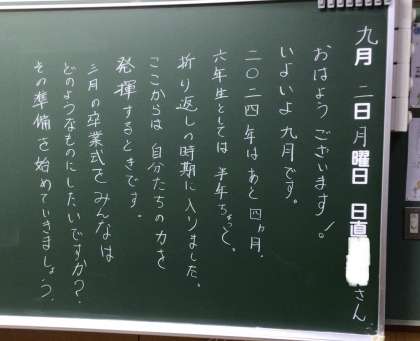 九月 二日 月曜日 日直 さん
おはようございます！
いよいよ九月です。
二〇二四年はあと四ヵ月、
六年生としては半年ちょっと。
折り返しの時期に入りました。
ここからは自分たちの力を
発揮するときです。
三月の卒業式をみんなは
どのようなものにしたいですか？
その準備を始めていきましょう。